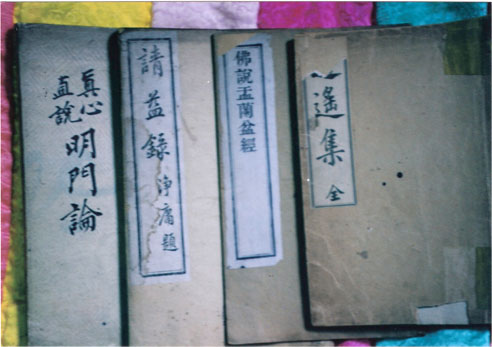 真心
直說
明門論
請益錄
淨庸題
佛說盂蘭盆經
遙集
全